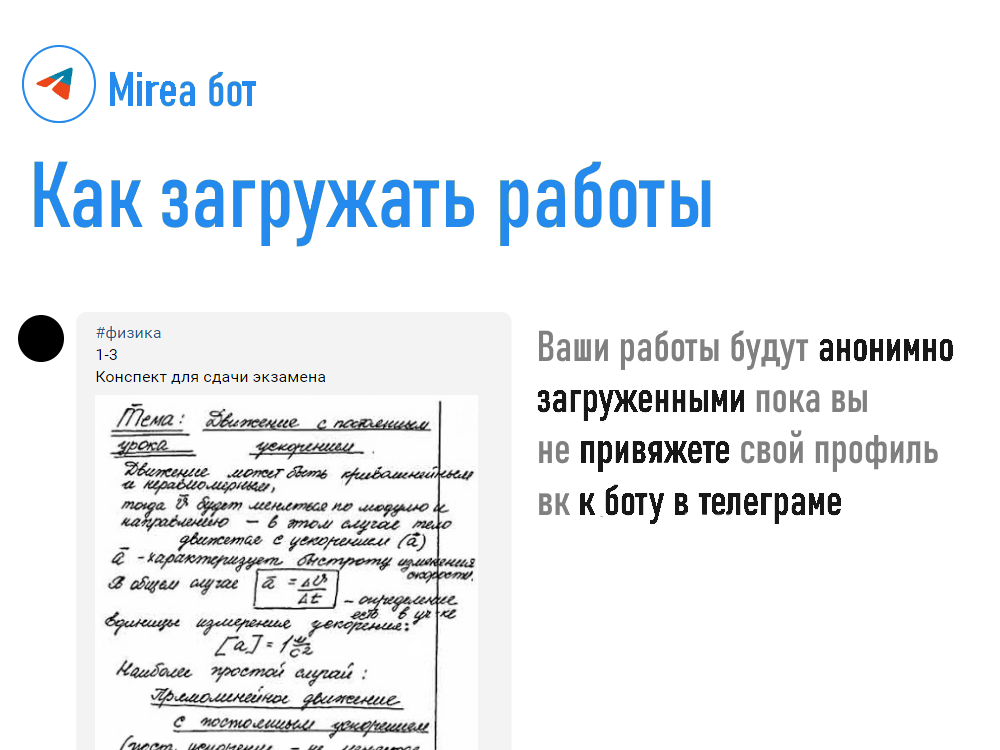 Mirea бот
Как загружать работы
#физика
1-3
Конспект для сдачи экзамена
Тема: Движение с постоянным
урока ускорением.
Движение может быть криволинейным
и неравномерным,
тогда v⃗ будет меняться по модулю и
направлению – в этом случае тело
движется с ускорением (a⃗)
a⃗ - характеризует быстроту изменения
скорости.
В общем случае a⃗ = Δv⃗/Δt – определение
есть в уч-ке
Единицы измерения ускорения:
[a] = 1 м/с2
Наиболее простой случай:
Прямолинейное движение
с постоянным ускорением
Ваши работы будут анонимно
загруженными пока вы
не привяжете свой профиль
вк к боту в телеграме